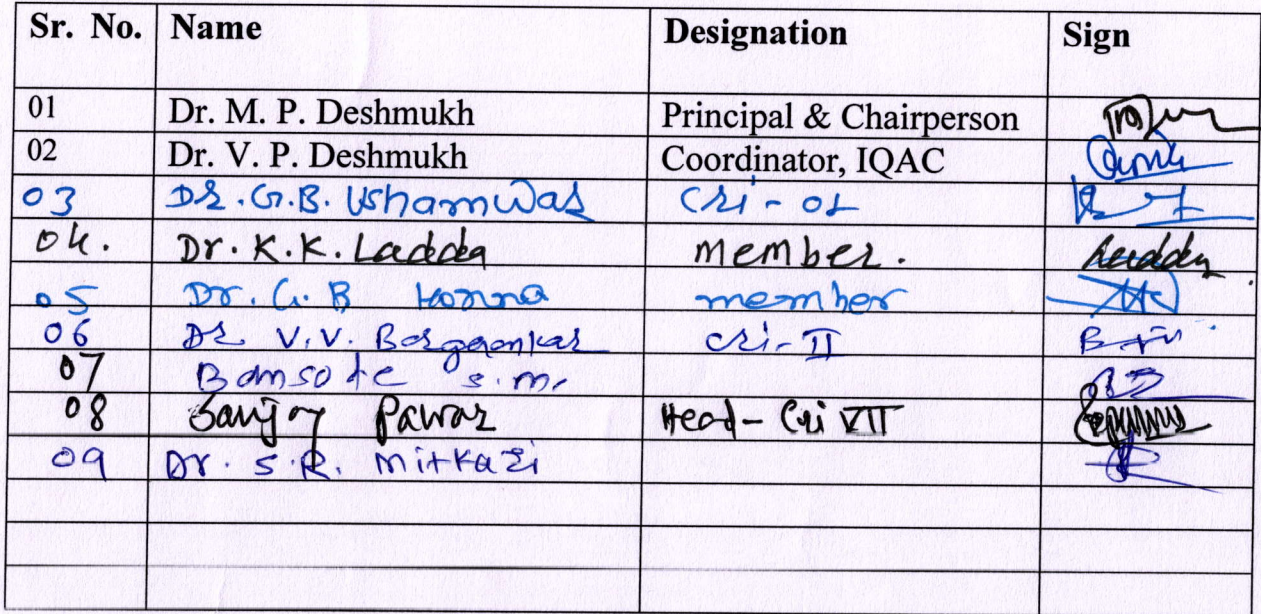 Sr. No. Name Designation Sign
01 Dr. M. P. Deshmukh Principal & Chairperson
02 Dr. V. P. Deshmukh Coordinator, IQAC
03 Dr. G.B. Ushamwar Cri - 01
04. Dr. K.K. Ladda member. Ladda
05 Dr. G. B Honna member
06 Dr V.V. Borgaonkar Cri-II
07 Bansode S.M.
08 Sanjay Pawar Head - Cri VII
09 Dr. S.R. Mitkari